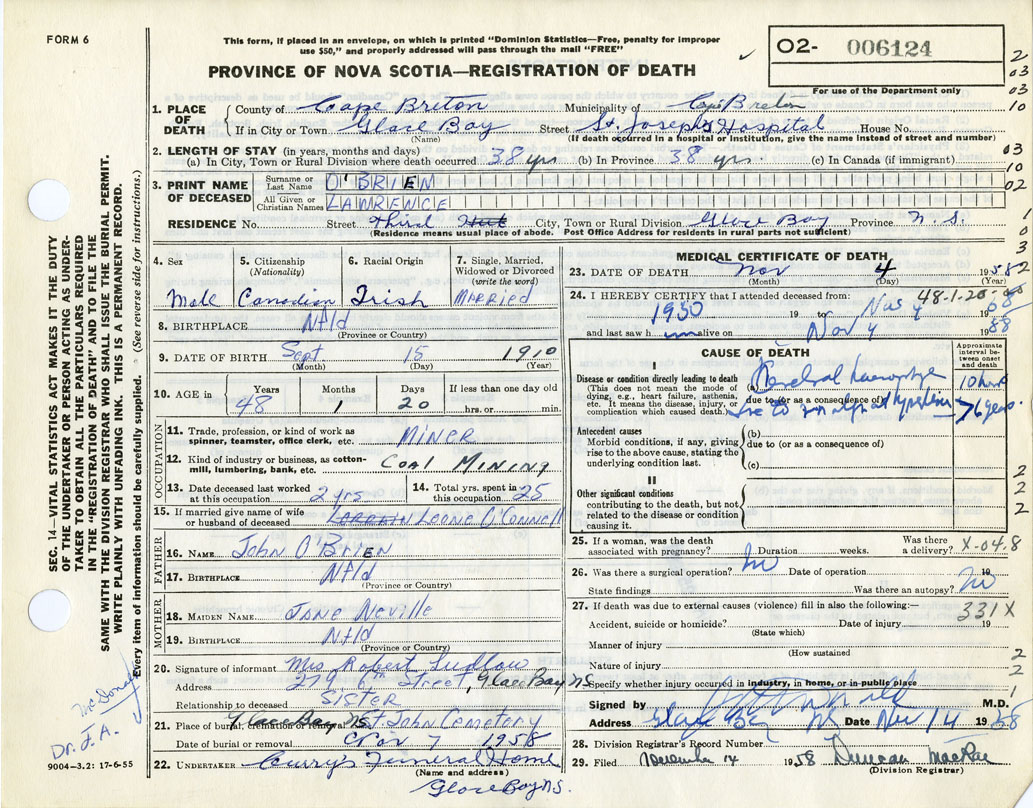 FORM 6
This form, if placed in an envelope, on which is printed "Dominion Statistics—Free, penalty for improper
use $50," and properly addressed will pass through the mail "FREE"
PROVINCE OF NOVA SCOTIA—REGISTRATION OF DEATH
02- 006124
For use of the Department only
1. PLACE OF DEATH
County of Cape Breton Municipality of Cape Breton
If in City or Town Glace Bay Street St Joseph's Hospital House No.
(Name) (If death occurred in a hospital or institution, give the name instead of street and number)
2. LENGTH OF STAY (in years, months and days)
(a) In City, Town or Rural Division where death occurred 38 yrs (b) In Province 38 yrs. (c) In Canada (if immigrant)
3. PRINT NAME OF DECEASED
Surname or Last Name O'BRIEN
All Given or Christian Names LAWRENCE
RESIDENCE No. Street Third City, Town or Rural Division Glace Bay Province N.S.
(Residence means usual place of abode. Post Office Address for residents in rural parts not sufficient)
4. Sex Male
5. Citizenship (Nationality) Canadian
6. Racial Origin Irish
7. Single, Married, Widowed or Divorced (write the word) MARRIED
8. BIRTHPLACE Nfld
(Province or Country)
9. DATE OF BIRTH Sept. 15 1910
(Month) (Day) (Year)
10. AGE in Years 48 Months 1 Days 20 If less than one day old hrs. or min.
OCCUPATION
11. Trade, profession, or kind of work as
spinner, teamster, office clerk, etc. MINER
12. Kind of industry or business, as cotton-
mill, lumbering, bank, etc. COAL MINING
13. Date deceased last worked
at this occupation 2 yrs
14. Total yrs. spent in
this occupation 25
15. If married give name of wife
or husband of deceased Leone O'Connell
FATHER
16. NAME John O'Brien
17. BIRTHPLACE Nfld
(Province or Country)
MOTHER
18. MAIDEN NAME Jane Neville
19. BIRTHPLACE Nfld
(Province or Country)
20. Signature of informant Mrs Robert Ludlow
Address 279 6th Street, Glace Bay N.S.
Relationship to deceased SISTER
21. Place of burial, cremation or removal Glace Bay NS St. John Cemetery
Date of burial or removal Nov 7 1958
22. UNDERTAKER Curry's Funeral Home
(Name and address)
Glace Bay N.S.
MEDICAL CERTIFICATE OF DEATH
23. DATE OF DEATH Nov 4 1958
(Month) (Day) (Year)
24. I HEREBY CERTIFY that I attended deceased from: 48-1-20
1950 19 to Nov 4 1958
and last saw h im alive on Nov 4 1958
CAUSE OF DEATH
Approximate interval between onset and death
I
Disease or condition directly leading to death
(This does not mean the mode of
dying, e.g., heart failure, asthenia,
etc. It means the disease, injury, or
complication which caused death.)
(a) Cerebral 10 hrs
due to (or as a consequence of)
due to
Antecedent causes
Morbid conditions, if any, giving
rise to the above cause, stating the
underlying condition last.
(b)
due to (or as a consequence of)
(c)
II
Other significant conditions
contributing to the death, but not
related to the disease or condition
causing it.
25. If a woman, was the death
associated with pregnancy? No Duration weeks. Was there a delivery? X-04.8
26. Was there a surgical operation? No Date of operation 19
State findings Was there an autopsy? No
27. If death was due to external causes (violence) fill in also the following:— 331X
Accident, suicide or homicide? Date of injury 19
(State which)
Manner of injury
(How sustained
Nature of injury
Specify whether injury occurred in industry, in home, or in public place
Signed by M.D.
Address Glace Bay NS Date Nov 14 1958
28. Division Registrar's Record Number
29. Filed November 14 1958 Duncan MacRae
(Division Registrar)
SEC. 14—VITAL STATISTICS ACT MAKES IT THE DUTY
OF THE UNDERTAKER OR PERSON ACTING AS UNDER-
TAKER TO OBTAIN ALL THE PARTICULARS REQUIRED
IN THE "REGISTRATION OF DEATH" AND TO FILE THE
SAME WITH THE DIVISION REGISTRAR WHO SHALL ISSUE THE BURIAL PERMIT.
WRITE PLAINLY WITH UNFADING INK. THIS IS A PERMANENT RECORD.
Every item of information should be carefully supplied. (See reverse side for instructions.)
Dr. J. A.
9004-3.2: 17-6-55
2
03
03
10
03
10
02
1
0
3
2
2
2
2
2
2
1